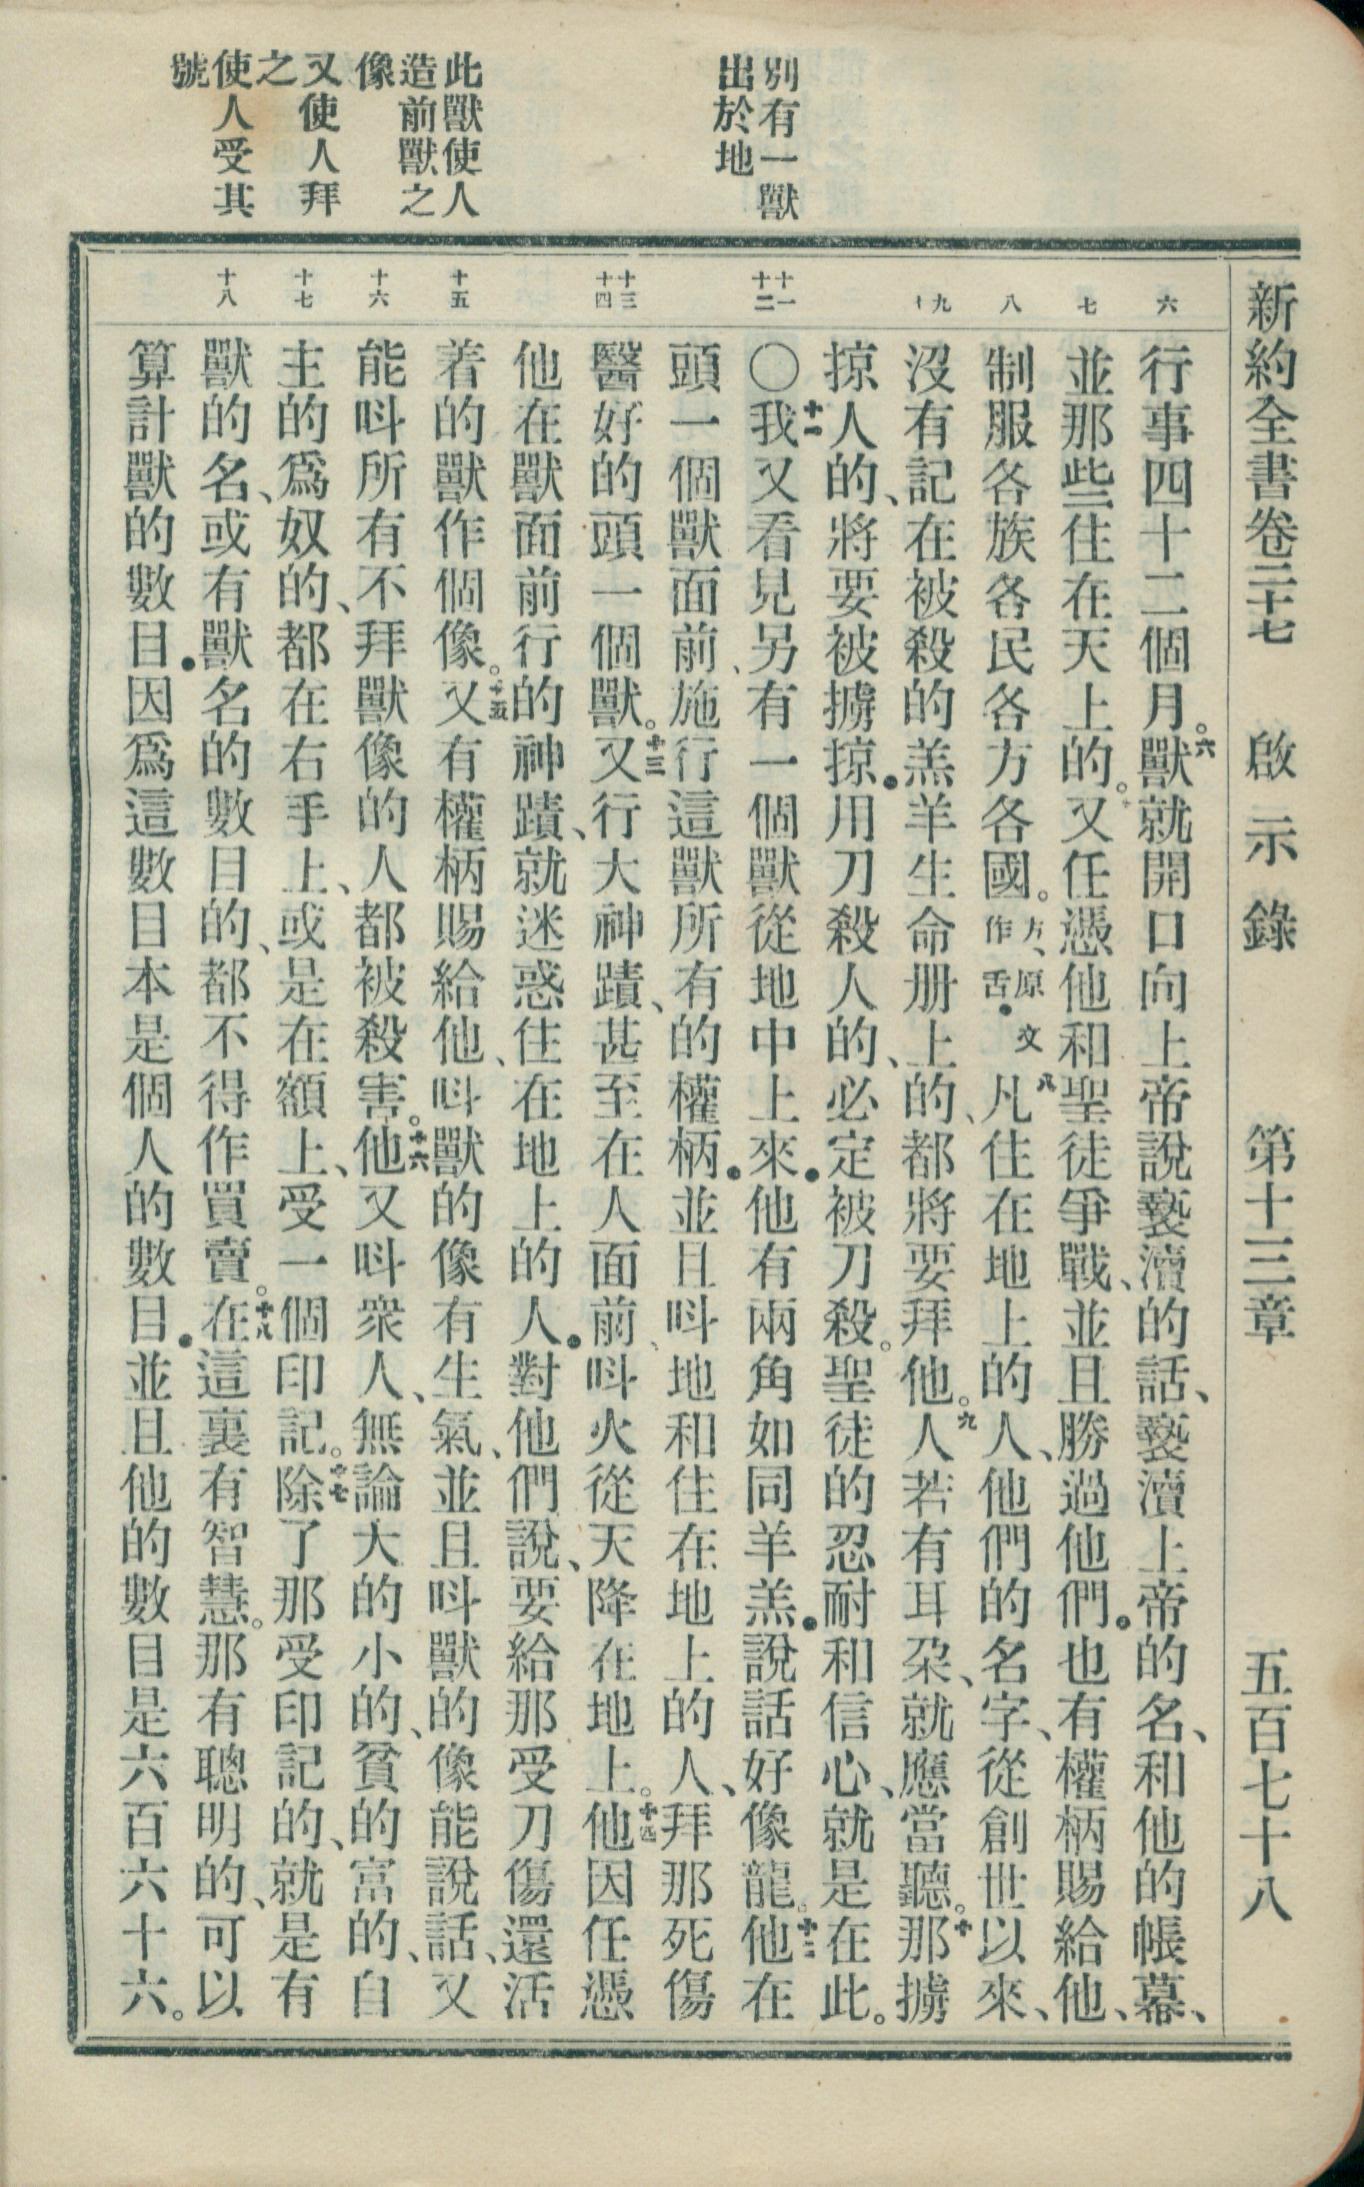 新約全書卷二十七　啟示錄　第十三章　五百七十八
別有一獸
出於地
此獸使人
造前獸之
像
又使人拜
之
使人受其
號
六
七
八
九
十
十一
十二
十三
十四
十五
十六
十七
十八
行事四十二個月。六獸就開口向上帝說褻瀆的話、褻瀆上帝的名、和他的帳幕、
並那些住在天上的。七又任憑他和聖徒爭戰、並且勝過他們．也有權柄賜給他、
制服各族各民各方各國。方、原文作舌．八凡住在地上的人、他們的名字、從創世以來、
沒有記在被殺的羔羊生命册上的、都將要拜他。九人若有耳朶、就應當聽。十那擄
掠人的、將要被擄掠．用刀殺人的、必定被刀殺。聖徒的忍耐和信心、就是在此。
〇十一我又看見另有一個獸從地中上來．他有兩角如同羊羔．說話好像龍。十二他在
頭一個獸面前、施行這獸所有的權柄．並且呌地和住在地上的人、拜那死傷
醫好的頭一個獸。十三又行大神蹟、甚至在人面前、呌火從天降在地上。十四他因任憑
他在獸面前行的神蹟、就迷惑住在地上的人．對他們說、要給那受刀傷還活
着的獸作個像。十五又有權柄賜給他、呌獸的像有生氣、並且呌獸的像能說話、又
能呌所有不拜獸像的人都被殺害。十六他又呌衆人、無論大的小的、貧的富的、自
主的爲奴的、都在右手上、或是在額上、受一個印記。十七除了那受印記的、就是有
獸的名、或有獸名的數目的、都不得作買賣。十八在這裏有智慧。那有聰明的、可以
算計獸的數目．因爲這數目本是個人的數目．並且他的數目是六百六十六。